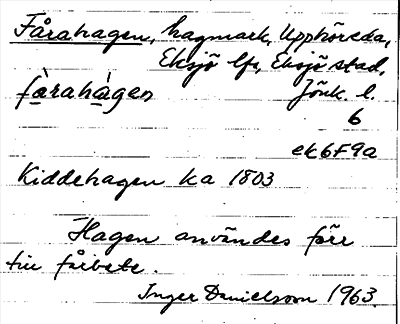 Fårahagen, hagmark, Upphöreda,
Eksjö lfs, Eksjö stad,
fàrahàgen Jönk. l.
6
ek6F9a
Kiddehagen ka 1803
Hagen användes förr
till fårbete.
Inger Danielsson 1963.